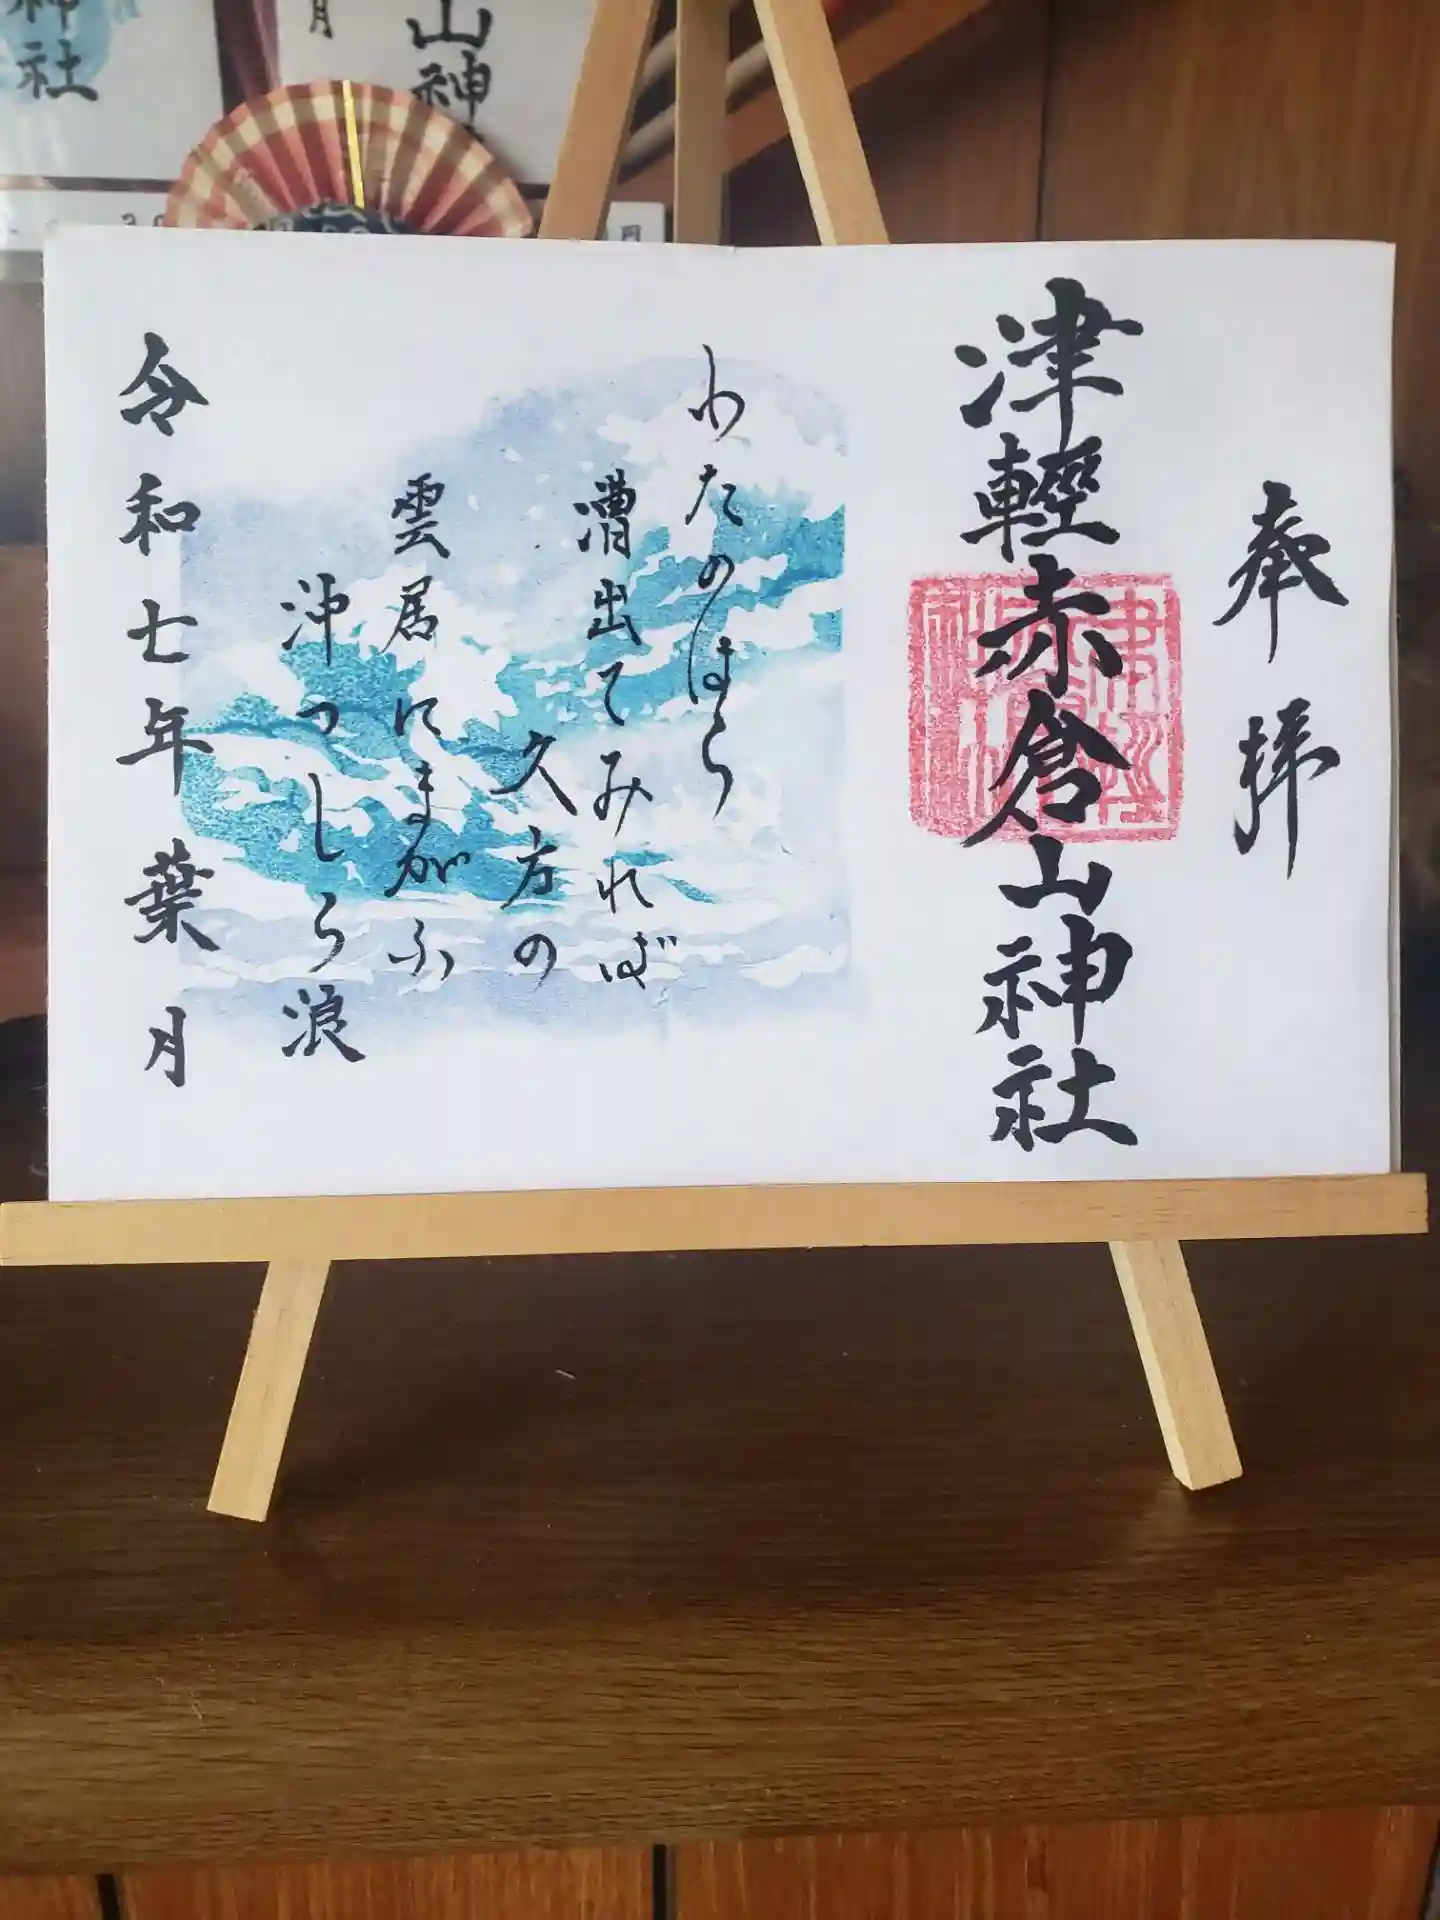 奉拝
津輕赤倉山神社
わたのはら
漕出てみれば
久方の
雲居にまがふ
沖つしら浪
令和七年葉月
神社
月
山神
円